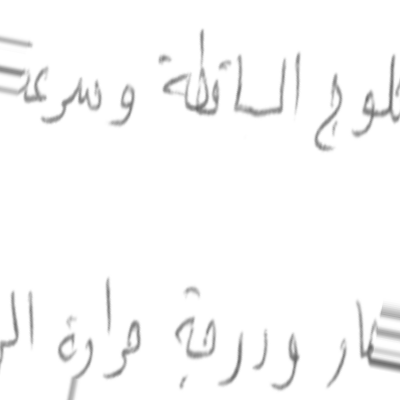 لوج الساقطة وسرعـ
ـار ودرجة حرارة الـ